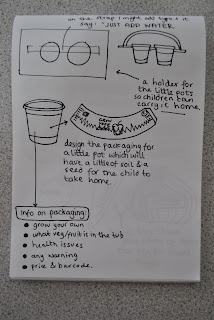 on the strap I might add type & it
say: "JUST ADD WATER
a holder for
the little pots
so children can
carry it home.
GROW
YOUR
OWN
design the packaging for
a little pot which will
have a little of soil & a
seed for the child to
take home.
Info on packaging
grow your own
what veg/fruit is in the tub
health issues
any warning
price & barcode.